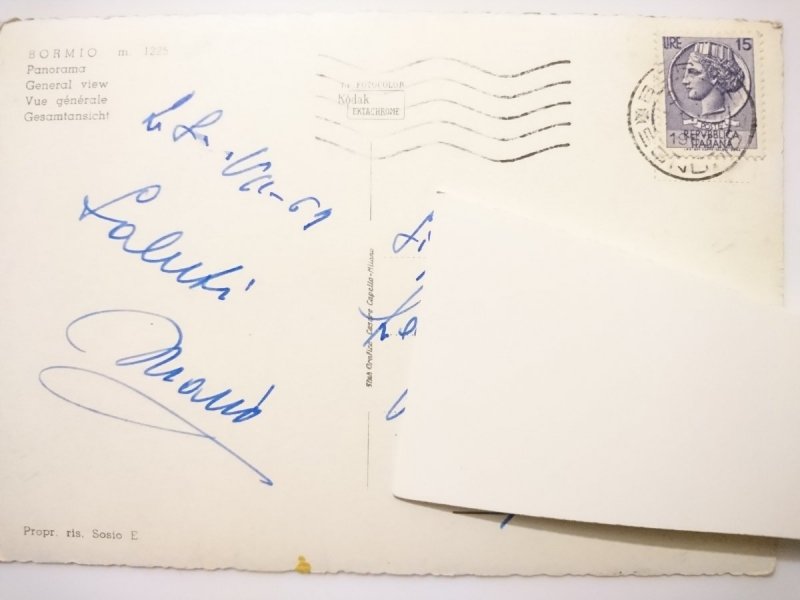 BORMIO m. 1225
Panorama
General view
Vue générale
Gesamtansicht
In FOTOCOLOR
Kodak
EKTACHROME
LIRE 15
POSTE
REPVBBLICA
ITALIANA
VII-61
Saluti
Mario
Grafica Cesare Capello-Milano
Propr. ris. Sosio E